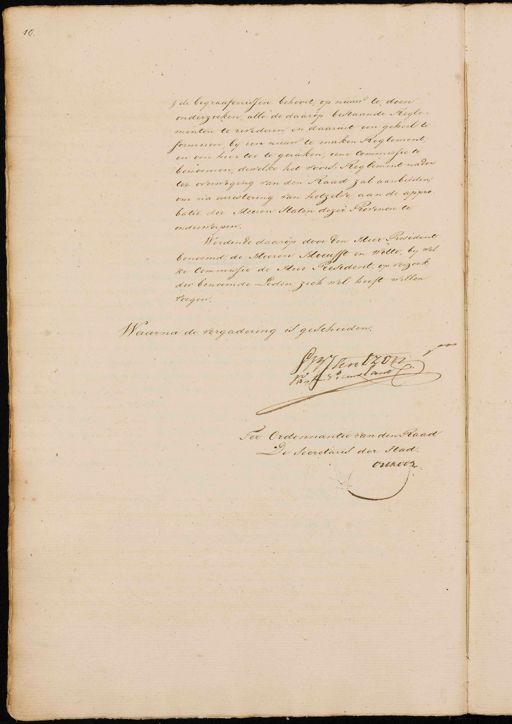 10.
de begraafenissen behoort, op nieuw te doen
onderzoeken, alle de daarop bestaande Regle-
menten te revideren, en daaruit een geheel te
formeren by een nieuw te maken Reglement,
en om hier toe te geraken, eene Commissie te
benoemen, dewelke het voors. Reglement nader
ter overweging van den Raad zal aanbieden,
om na arrestering van hetzelve, aan de appro-
batie der Heeren Staten dezer Provincie te
onderwerpen.
Werdende daartoe door den Heer President
benoemd de Heeren en by wel-
ke Commissie de Heer President, op verzoek
der benoemde Leden, zich wel heeft willen
voegen.
Waarna de vergadering is gescheiden.
Ter Ordonnantie van den Raad
De Secretaris der Stad.